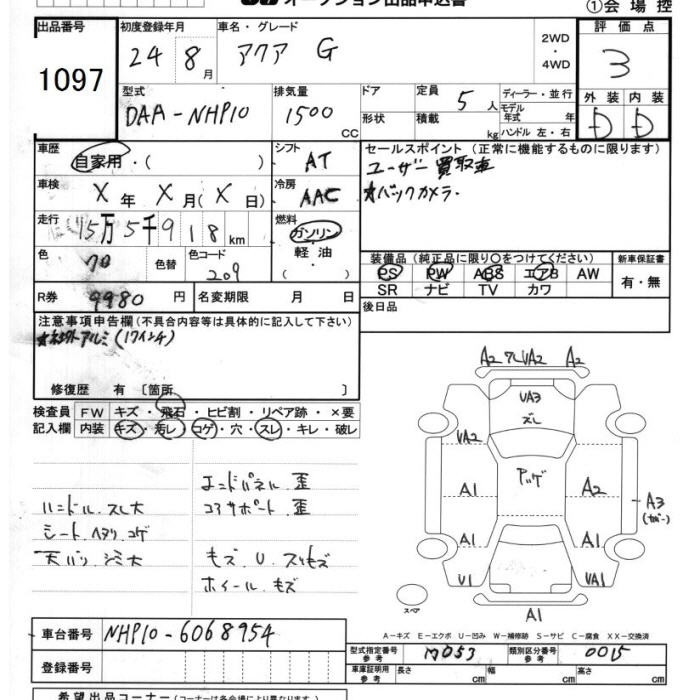 オークション出品申込書
①会場控
出品番号
1097
初度登録年月
24 8月
車名・グレード
アクア G
2WD
・
4WD
評価点
3
型式
DAA-NHP10
排気量
1500 CC
ドア
形状
定員
5人
積載
kg
ディーラー・並行
モデル年式 年
ハンドル 左・右
外装 内装
D D
車歴
自家用・( )
シフト
AT
車検
X年 X月(X日)
冷房
AAC
走行
15万5千918km
燃料
ガソリン
軽油
( )
色
クロ
色替
色コード
209
R券 9980円
名変期限 月 日
セールスポイント (正常に機能するものに限ります)
ユーザー買取車
★バックカメラ.
装備品(純正品に限り〇をつけてください)
PS PW ABS エアB AW
SR ナビ TV カワ
新車保証書
有・無
後日品
注意事項申告欄(不具合内容等は具体的に記入して下さい)
★社外アルミ(17インチ)
修復歴 有 〔箇所 〕
検査員記入欄
FW キズ・飛石・ヒビ割・リペア跡・×要
内装 キズ・汚レ・コゲ・穴・スレ・キレ・破レ
エンドパネル.歪
ハンドル.スレ大
コアサポート.歪
シート.ヘタリ.コゲ
天バリ.シミ大
キズ.U.スリキズ
ホイール.キズ
A2 ワレUA2 A2
UA3
ズレ
UA2
アッゲ
A1
A2
A3
(カバー)
A1
A1
U1
UA1
スペア
A1
A-キズ E-エクボ U-凹み W-補修跡 S-サビ C-腐食 XX-交換済
車台番号
NHP10-6068954
登録番号
型式指定番号
参考
17053
類別区分番号
参考
0015
車庫証明用
参考
長さ cm
幅 cm
高さ cm
希望出品コーナー(コーナーは各会場により異なります)